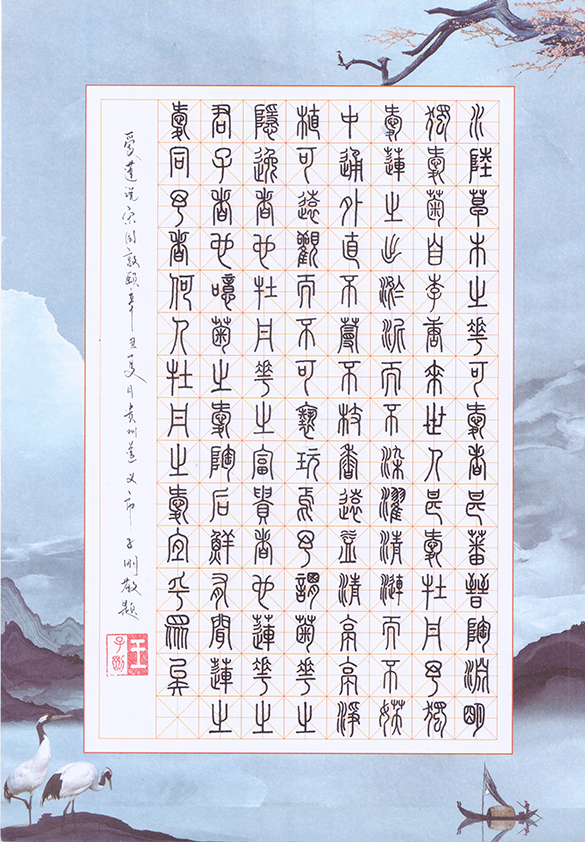 水陸草木之花可愛者甚蕃晉陶淵明
獨愛菊自李唐來世人甚愛牡丹予獨
愛蓮之出淤泥而不染濯清漣而不妖
中通外直不蔓不枝香遠益清亭亭淨
植可遠觀而不可褻玩焉予謂菊花之
隱逸者也牡丹花之富貴者也蓮花之
君子者也噫菊之愛陶后鮮有聞蓮之
愛同予者何人牡丹之愛宜乎眾矣
愛蓮说宋周敦頤辛丑夏月贵州遵义市子刚敬题
王子剛